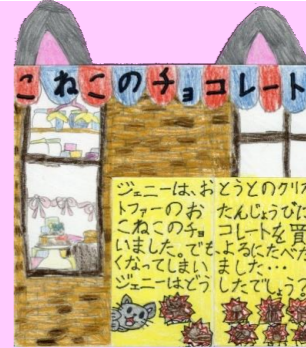 こねこのチョコレート
ジェニーは、おとうとのクリス
トファーのおたんじょうびに
こねこのチョコレートを買
いました。でもよるにたべた
くなってしまいました・・・
ジェニーはどうしたでしょう